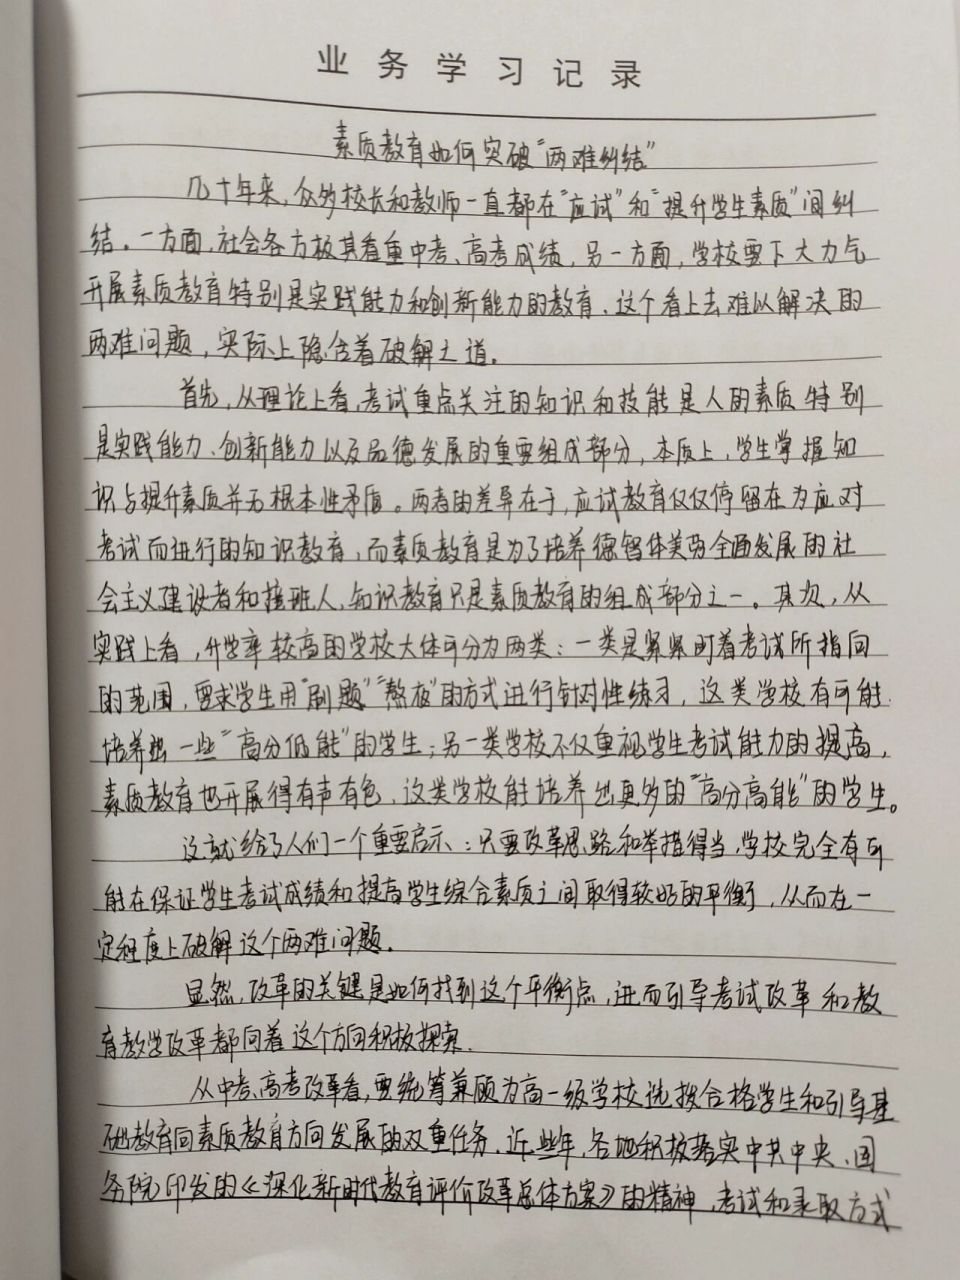 业务学习记录
素质教育如何突破“两难纠结”
几十年来，众多校长和教师一直都在“应试”和“提升学生素质”间纠
结。一方面，社会各方极其看重中考、高考成绩，另一方面，学校要下大力气
开展素质教育特别是实践能力和创新能力的教育、这个看上去难以解决的
两难问题，实际上隐含着破解之道。
首先，从理论上看，考试重点关注的知识和技能是人的素质特别
是实践能力、创新能力以及品德发展的重要组成部分，本质上，学生掌握知
识与提升素质并无根本性矛盾。两者的差异在于，应试教育仅仅停留在为应对
考试而进行的知识教育，而素质教育是为了培养德智体美劳全面发展的社
会主义建设者和接班人，知识教育只是素质教育的组成部分之一。其次，从
实践上看，升学率较高的学校大体可分为两类：一类是紧紧盯着考试所指向
的范围，要求学生用“刷题”“熬夜”的方式进行针对性练习，这类学校有可能
培养出一些“高分低能”的学生；另一类学校不仅重视学生考试能力的提高，
素质教育也开展得有声有色，这类学校能培养出更多的“高分高能”的学生。
这就给了人们一个重要启示：只要改革思路和举措得当，学校完全有可
能在保证学生考试成绩和提高学生综合素质之间取得较好的平衡，从而在一
定程度上破解这个两难问题。
显然，改革的关键是如何找到这个平衡点，进而引导考试改革和教
育教学改革都向着这个方向积极探索.
从中考、高考改革看，要统筹兼顾为高一级学校选拔合格学生和引导基
础教育向素质教育方向发展的双重任务．近些年，各地积极落实中共中央、国
务院印发的《深化新时代教育评价改革总体方案》的精神，考试和录取方式